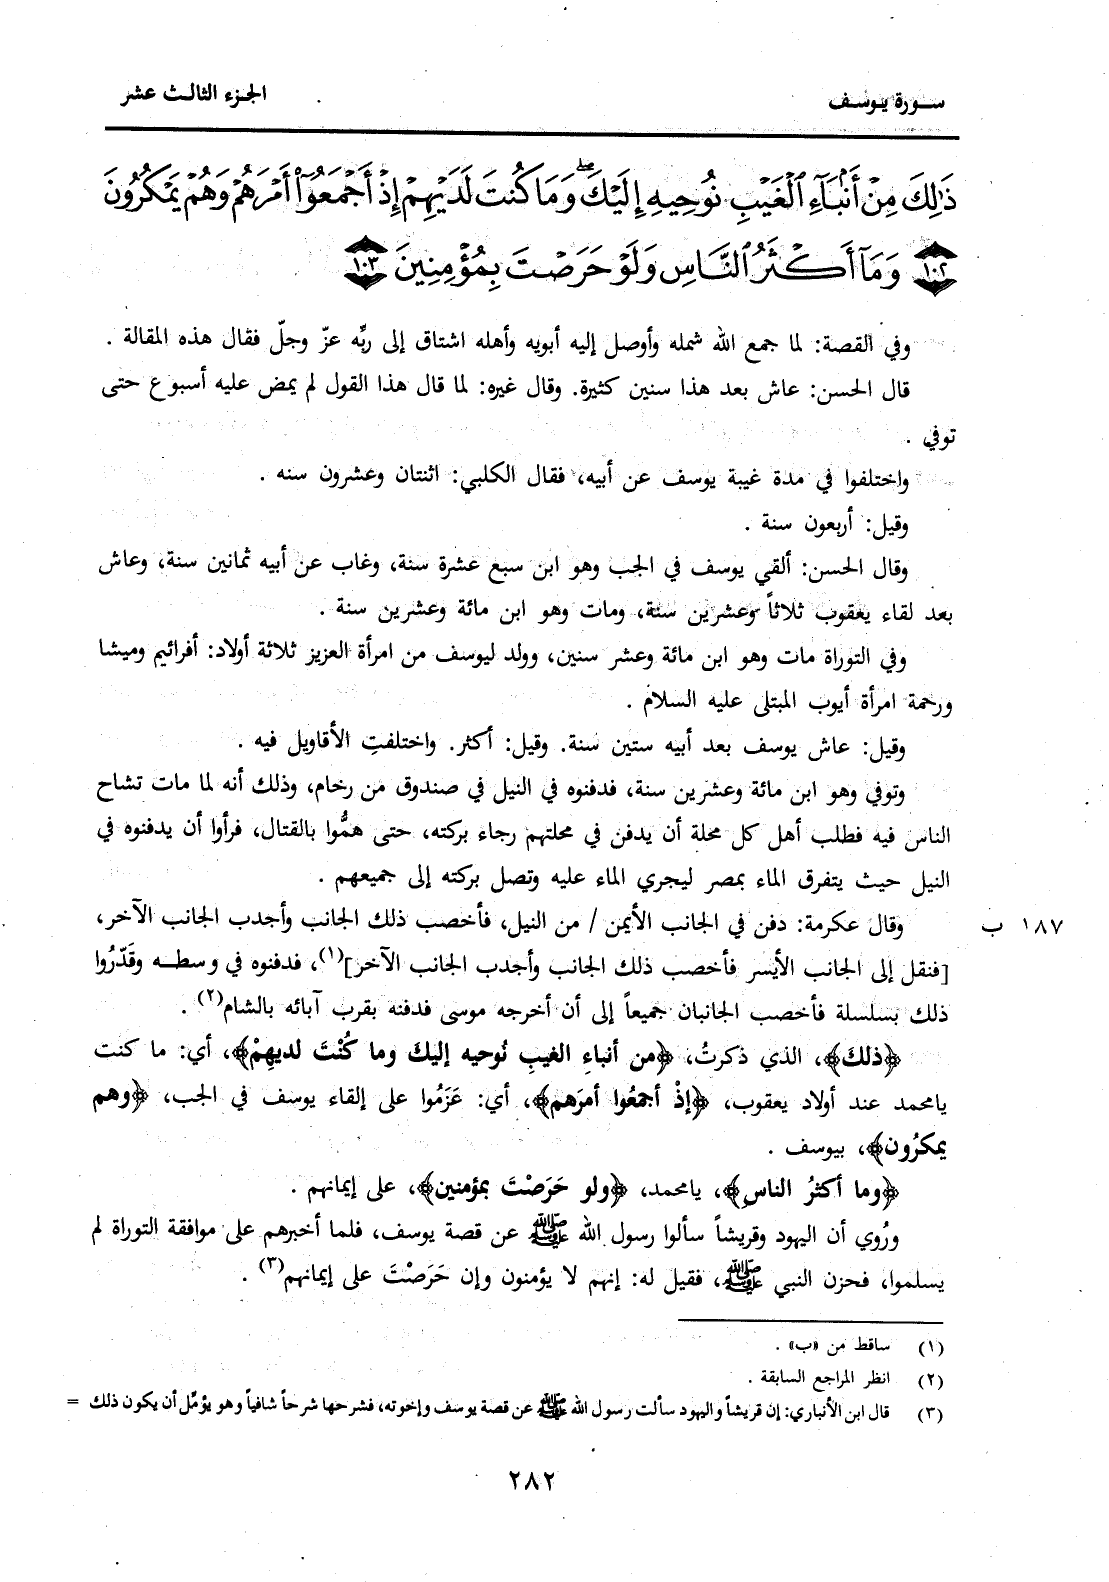 سورة يوسف
الجزء الثالث عشر
ذَٰلِكَ مِنْ أَنۢبَآءِ ٱلْغَيْبِ نُوحِيهِ إِلَيْكَ ۖ وَمَا كُنتَ لَدَيْهِمْ إِذْ أَجْمَعُوٓا۟ أَمْرَهُمْ وَهُمْ يَمْكُرُونَ
﴿١٠٢﴾ وَمَآ أَكْثَرُ ٱلنَّاسِ وَلَوْ حَرَصْتَ بِمُؤْمِنِينَ ﴿١٠٣﴾
وفي القصة: لما جمع الله شمله وأوصل إليه أبويه وأهله اشتاق إلى ربِّه عزّ وجلّ فقال هذه المقالة .
قال الحسن: عاش بعد هذا سنين كثيرة. وقال غيره: لما قال هذا القول لم يمض عليه أسبوع حتى
توفي .
واختلفوا في مدة غيبة يوسف عن أبيه، فقال الكلبي: اثنتان وعشرون سنه .
وقيل: أربعون سنة .
وقال الحسن: ألقي يوسف في الجب وهو ابن سبع عشرة سنة، وغاب عن أبيه ثمانين سنة، وعاش
بعد لقاء يعقوب ثلاثاً وعشرين سنة، ومات وهو ابن مائة وعشرين سنة .
وفي التوراة مات وهو ابن مائة وعشر سنين، وولد ليوسف من امرأة العزيز ثلاثة أولاد: أفرائيم وميشا
ورحمة امرأة أيوب المبتلى عليه السلام .
وقيل: عاش يوسف بعد أبيه ستين سنة. وقيل: أكثر. واختلفتِ الأقاويل فيه .
وتوفي وهو ابن مائة وعشرين سنة، فدفنوه في النيل في صندوق من رخام، وذلك أنه لما مات تشاح
الناس فيه فطلب أهل كل محلة أن يدفن في محلتهم رجاء بركته، حتى همُّوا بالقتال، فرأوا أن يدفنوه في
النيل حيث يتفرق الماء بمصر ليجري الماء عليه وتصل بركته إلى جميعهم .
وقال عكرمة: دفن في الجانب الأيمن / من النيل، فأخصب ذلك الجانب وأجدب الجانب الآخر،
١٨٧ ب
[فنقل إلى الجانب الأيسر فأخصب ذلك الجانب وأجدب الجانب الآخر](١)، فدفنوه في وسطه وقَدّرُوا
ذلك بسلسلة فأخصب الجانبان جميعاً إلى أن أخرجه موسى فدفنه بقرب آبائه بالشام(٢) .
﴿ذلك﴾، الذي ذكرتُ، ﴿من أنباءِ الغيبِ نُوحيه إليكَ وما كُنْتَ لديهِمْ﴾، أي: ما كنت
يامحمد عند أولاد يعقوب، ﴿إذْ أجمعُوا أمرَهم﴾، أي: عَزَمُوا على إلقاء يوسف في الجب، ﴿وهم
يمكرُون﴾، بيوسف .
﴿وما أكثرُ الناسِ﴾، يامحمد، ﴿ولو حَرَصْتَ بمؤمنين﴾، على إيمانهم .
ورُوي أن اليهود وقريشاً سألوا رسول الله ﷺ عن قصة يوسف، فلما أخبرهم على موافقة التوراة لم
يسلموا، فحزن النبي ﷺ، فقيل له: إنهم لا يؤمنون وإن حَرَصْتَ على إيمانهم(٣) .
(١) ساقط من «ب» .
(٢) انظر المراجع السابقة .
(٣) قال ابن الأنباري: إن قريشاً واليهود سألت رسول الله ﷺ عن قصة يوسف وإخوته، فشرحها شرحاً شافياً وهو يؤمِّل أن يكون ذلك =
٢٨٢